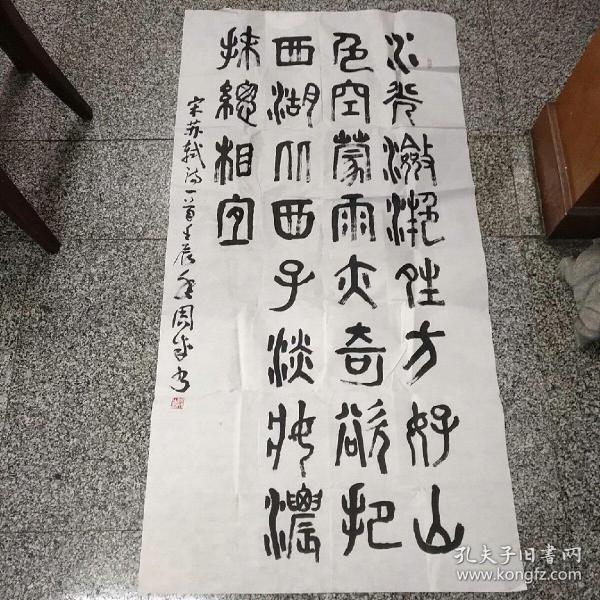 水光瀲灧晴方好山
色空蒙雨亦奇欲把
西湖比西子淡妝濃
抹總相宜
宋苏軾诗一首壬辰年周书
孔夫子旧書网
www.kongfz.com